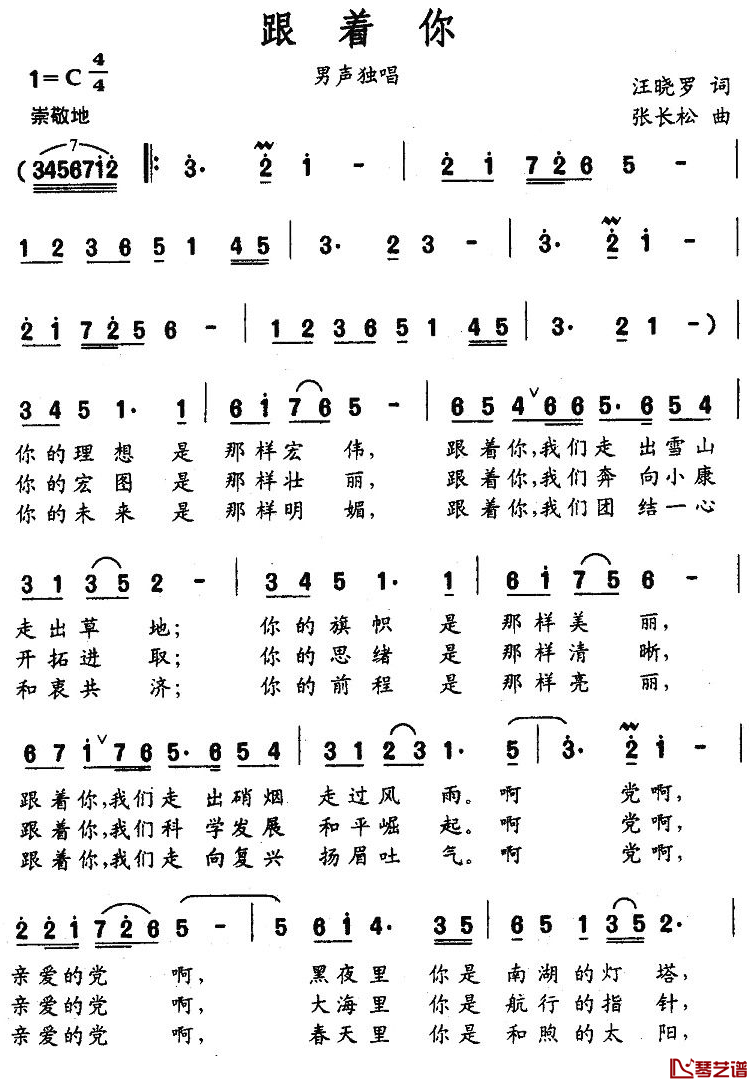 跟着你
1=C 4/4
男声独唱
汪晓罗 词
崇敬地
张长松 曲
7
(3456712 3· 2 1 - 2 1 7 2 6 5 -
1 2 3 6 5 1 4 5 3· 2 3 - 3· 2 1 -
2 1 7 2 5 6 - 1 2 3 6 5 1 4 5 3· 2 1 -)
3 4 5 1· 1 6 1 7 6 5 - 6 5 4 6 6 5· 6 5 4
你的理想是那样宏伟, 跟着你,我们走出雪山
你的宏图是那样壮丽, 跟着你,我们奔向小康
你的未来是那样明媚, 跟着你,我们团结一心
3 1 3 5 2 - 3 4 5 1· 1 6 1 7 5 6 -
走出草地; 你的旗帜是那样美丽,
开拓进取; 你的思绪是那样清晰,
和衷共济; 你的前程是那样亮丽,
6 7 1 7 6 5· 6 5 4 3 1 2 3 1· 5 3· 2 1 -
跟着你,我们走出硝烟走过风雨。啊 党啊,
跟着你,我们科学发展和平崛起。啊 党啊,
跟着你,我们走向复兴扬眉吐气。啊 党啊,
2 2 1 7 2 6 5 - 5 6 1 4· 3 5 6 5 1 3 5 2·
亲爱的党啊, 黑夜里你是南湖的灯塔,
亲爱的党啊, 大海里你是航行的指针,
亲爱的党啊, 春天里你是和煦的太阳,
琴艺谱